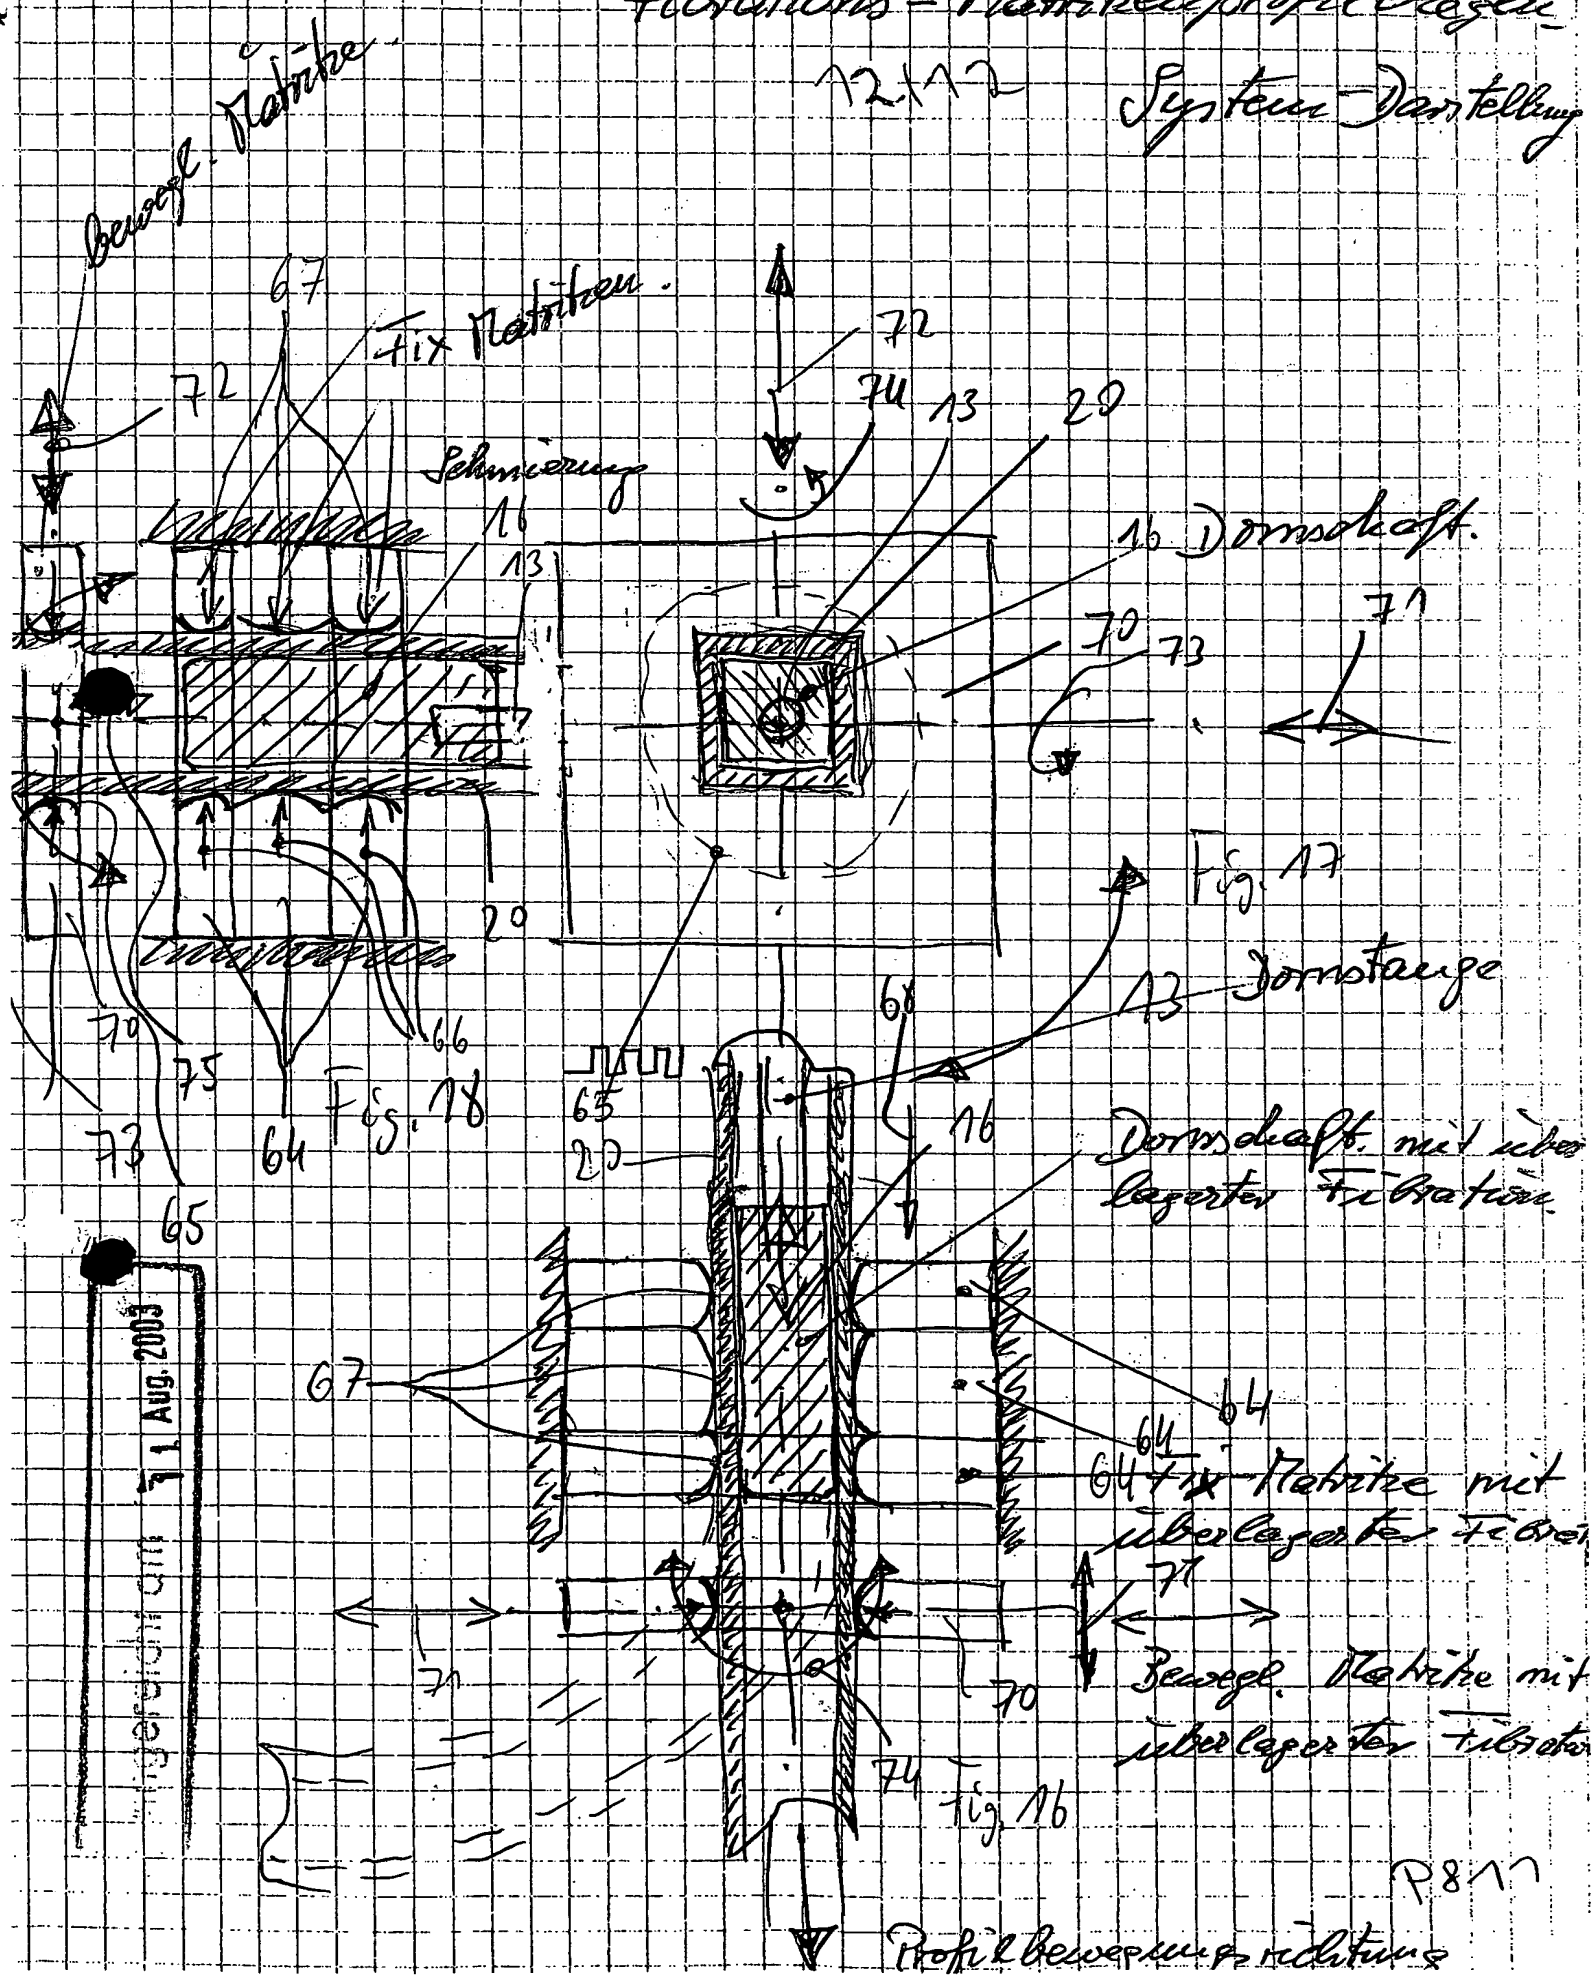 12/12
System-Darstellung
bewegl. Matritze.
67
Fix Matritzen.
72
72
74
13
20
Schmierung
16
13
16 Dornschaft.
71
70
73
Fig. 17
20
Dornstange
13
68
70
75
66
Fig. 18
65
20
16
73
64
65
Dornschaft. mit über
lagerter Fibration.
11 Aug. 2003
67
64
64
64 Fix Matritze mit
überlagerter
71
71
70
Bewegl. Matritze mit
überlagerter
74
Fig. 16
P811
Profilbewegungsrichtung